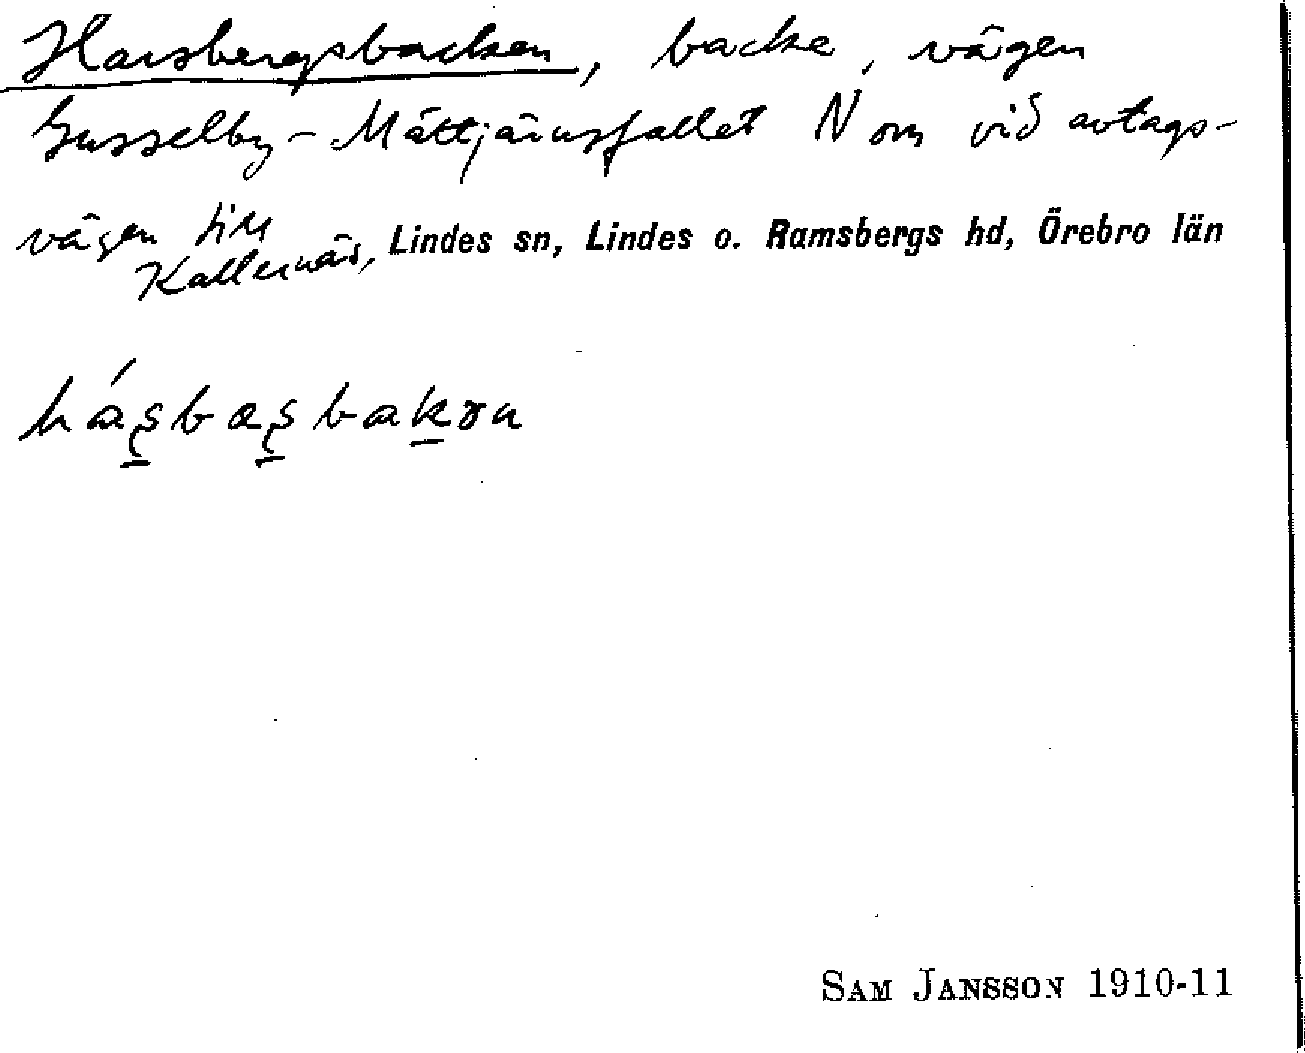 Harsbergsbacken, backe, vägen
Gusselby - Måttjärnsfallet N om vid avtags-
vägen till Kallernäs, Lindes sn, Lindes o. Ramsbergs hd, Örebro län
SAM JANSSON 1910-11